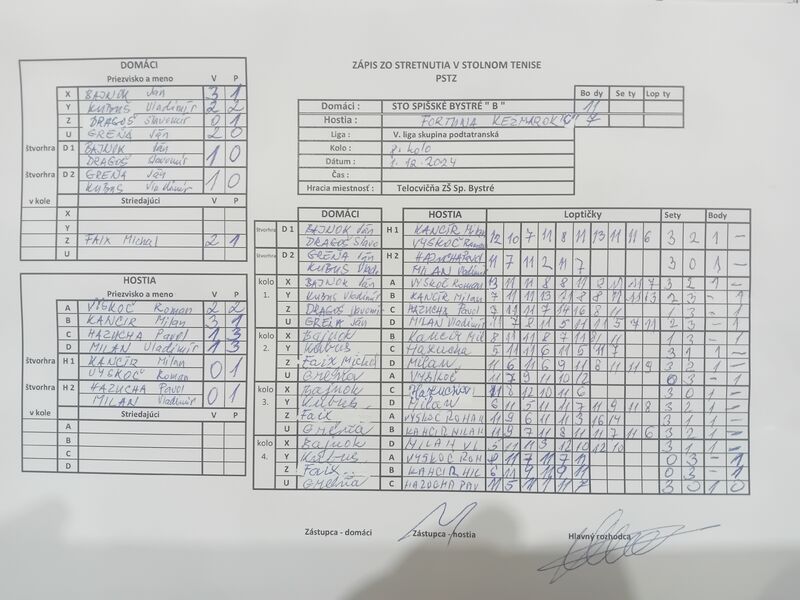 ZÁPIS ZO STRETNUTIA V STOLNOM TENISE
PSTZ
Bo dy Se ty Lop ty
Domáci : STO SPIŠSKÉ BYSTRÉ " B " 11
Hostia : FORTUNA KEŽMAROK "C" 7
Liga : V. liga skupina podtatranská
Kolo : 8. kolo
Dátum : 1. 12. 2024
Čas :
Hracia miestnosť : Telocvičňa ZŠ Sp. Bystré
DOMÁCI
Priezvisko a meno V P
X BAJNOK Ján 3 1
Y KUBUS Vladimír 2 2
Z DRAGOŠ Slavomír 0 1
U GREŇA Ján 2 0
štvorhra D 1 BAJNOK Ján
DRAGOŠ Slavomír 1 0
štvorhra D 2 GREŇA Ján
KUBUS Vladimír 1 0
v kole Striedajúci
X
Y
Z FAIX Michal 2 1
U
HOSTIA
Priezvisko a meno V P
A VÝSKOČ Roman 2 2
B KANCÍR Milan 3 1
C HAZUCHA Pavol 1 3
D MILAN Vladimír 1 3
štvorhra H 1 KANCÍR
VÝSKOČ Roman 0 1
štvorhra H 2 HAZUCHA Pavol
MILAN Vladimír 0 1
v kole Striedajúci
A
B
C
D
DOMÁCI HOSTIA Loptičky Sety Body
štvorhra D 1 BAJNOK Ján H 1 KANCÍR Milan
DRAGOŠ Slavo VÝSKOČ Roman 12 10 7 11 8 11 13 11 11 6 3 2 1 -
štvorhra D 2 GREŇA Ján H 2 HAZUCHA Pavol
KUBUS Vladi MILAN Vladimír 11 7 11 2 11 7 3 0 1 -
kolo 1.
X BAJNOK Ján A VÝSKOČ Roman 3 2 1 -
Y KUBUS Vladimír B KANCÍR Milan 2 3 - 1
Z DRAGOŠ Slavomír C HAZUCHA Pavol 1 3 - 1
U GREŇA Ján D MILAN Vladimír 3 2 1 -
kolo 2.
X Bajnok B Kancír Mil
Y Kubus C Hazucha 5 11 11 6 11 5 11 7 3 1 1 -
Z Faix Michal D Milan 11 6 11 6 9 11 8 11 11 9 3 2 1 -
U Greňa A VÝSKOČ 11 7 9 11 10 12 0 3 - 1
kolo 3.
X Bajnok C Hazucha 11 8 12 10 11 6 3 0 1 -
Y Kubus D Milan 3 2 1 -
Z Faix A VÝSKOČ ROMAN 3 1 1 -
U Greňa B KANCÍR MILAN 3 2 1 -
kolo 4.
X Bajnok D MILAN VL 3 1 1 -
Y Kubus A VÝSKOČ ROM 0 3 - 1
Z Faix B KANCÍR MIL 6 11 9 11 9 11 0 3 - 1
U Greňa C HAZUCHA PAV 11 5 11 7 11 7 3 0 1 0
Zástupca - domáci Zástupca - hostia Hlavný rozhodca